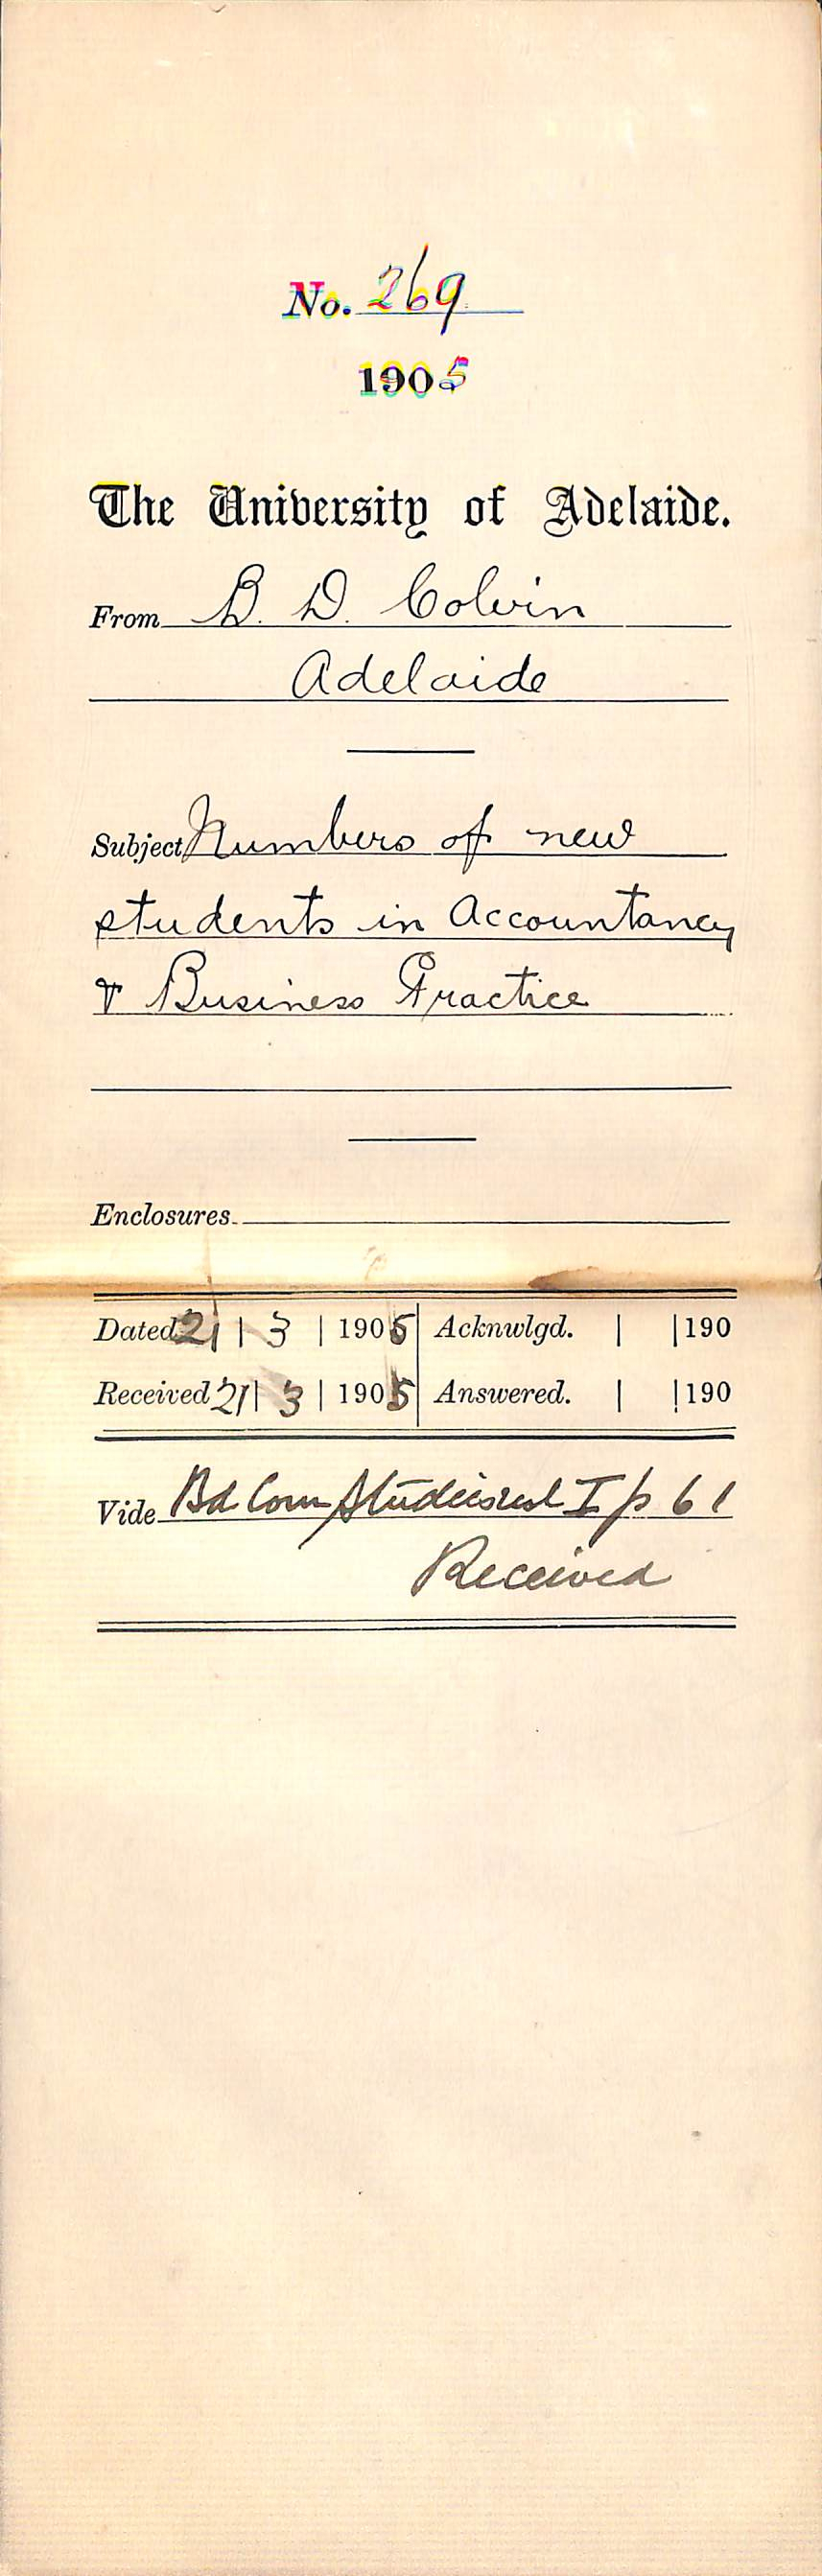 No. 269
1905
The University of Adelaide.
From B. D. Colvin
Adelaide
Subject Numbers of new
students in Accountancy
& Business Practice
Enclosures
Dated 21 | 3 | 1905 Acknwlgd. | | 190
Received 21 | 3 | 1905 Answered. | | 190
Vide Bd Com Studies vol I p 61
Received